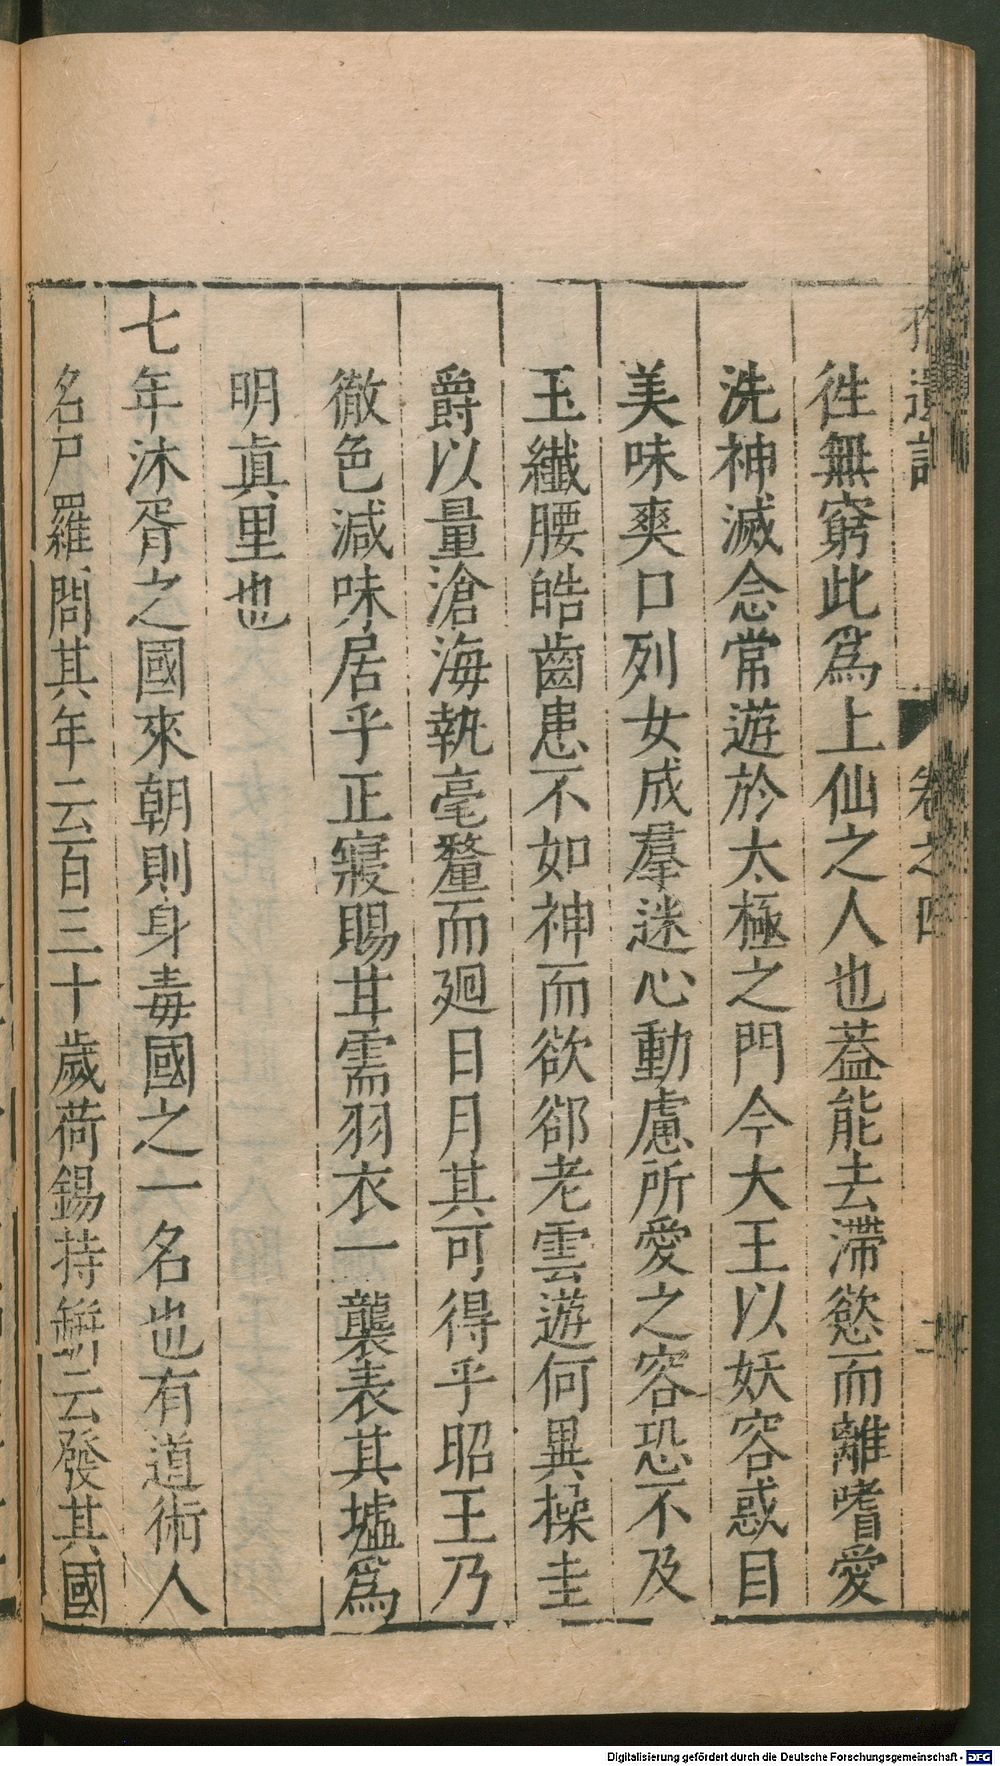 遺記 卷之四 二
徃無窮此爲上仙之人也葢能去滯慾而離嗜愛
洗神滅念常遊於太極之門今大王以妖容惑目
美味爽口列女成羣迷心動慮所愛之容恐不及
玉纖腰皓齒患不如神而欲郤老雲遊何異操圭
爵以量滄海執毫釐而廻日月其可得乎昭王乃
徹色減味居乎正寢賜甘需羽衣一襲表其墟爲
明眞里也
七年沐胥之國來朝則身毒國之一名也有道術人
名尸羅問其年云百三十歲荷錫持缾云發其國
Digitalisierung gefördert durch die Deutsche Forschungsgemeinschaft - DFG